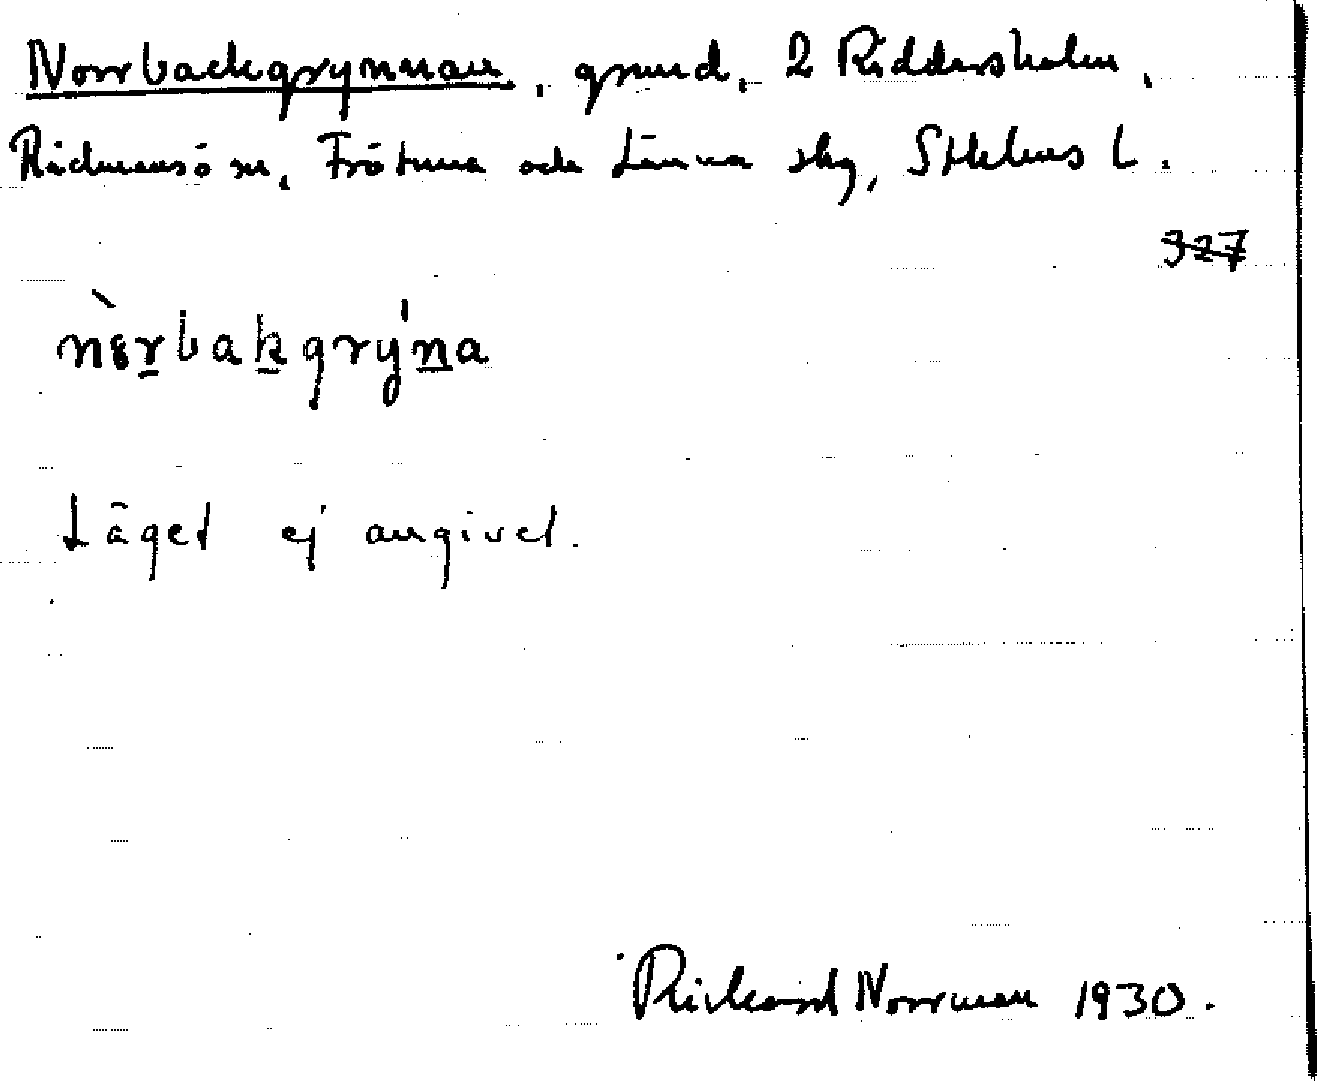 Norrbackgrynnan, grund, 2 Riddersholm,
Rådmansö sn, Frötuna och Länna skg, Sthlms l.
327
nèrbakgrýna
Läget ej angivet.
Rickard Norrman 1930.